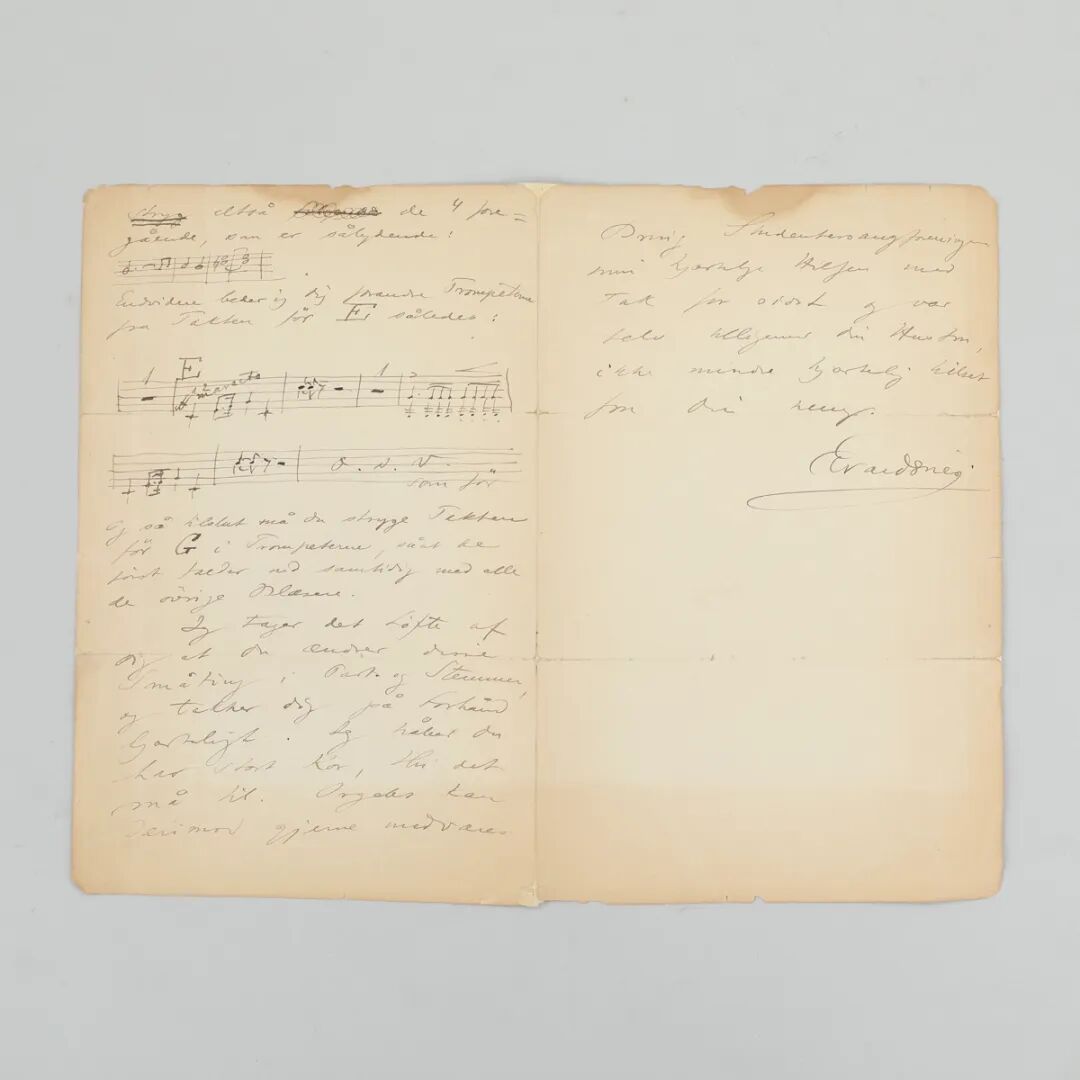 stryg altså de 4 fore=
gående, som er sålydende:
Endvidere beder jeg dig forandre Trompeterne
fra Takten før E således:
1 E 1
marcato
o. s. v.
som før
Og så tilslut må du stryge Takten
før G i Trompeterne, så at de
først falder ind samtidig med alle
de øvrige Blæsere.
Jeg tager det Løfte af
dig at du ændrer disse
Småting i Part. og Stemmer,
og takker dig på Forhånd
hjerteligt. Jeg håber du
har stort Kor, thi det
må til. Orgelet kan
derimod gjerne undværes
Bring Studentersangforeningen
min hjertelige Hilsen med
Tak for sidst og vær
selv tilligemed din Hustru,
ikke mindre hjertelig hilset
fra din heng.
Edvard Grieg